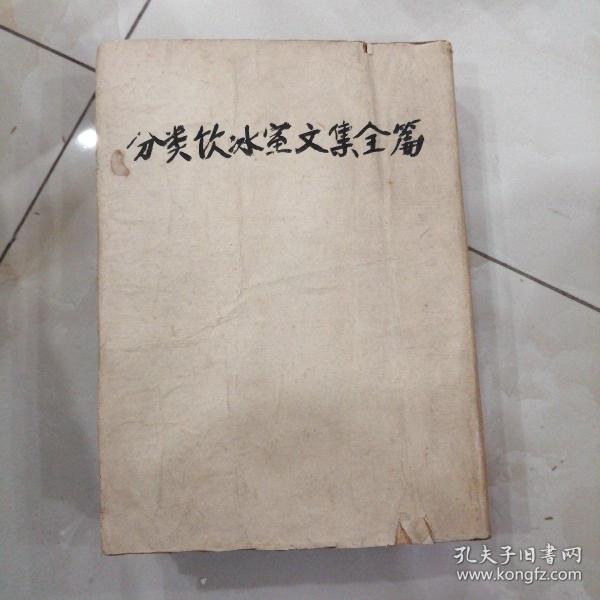 分类饮冰室文集全篇
孔夫子旧書网
www.kongfz.com